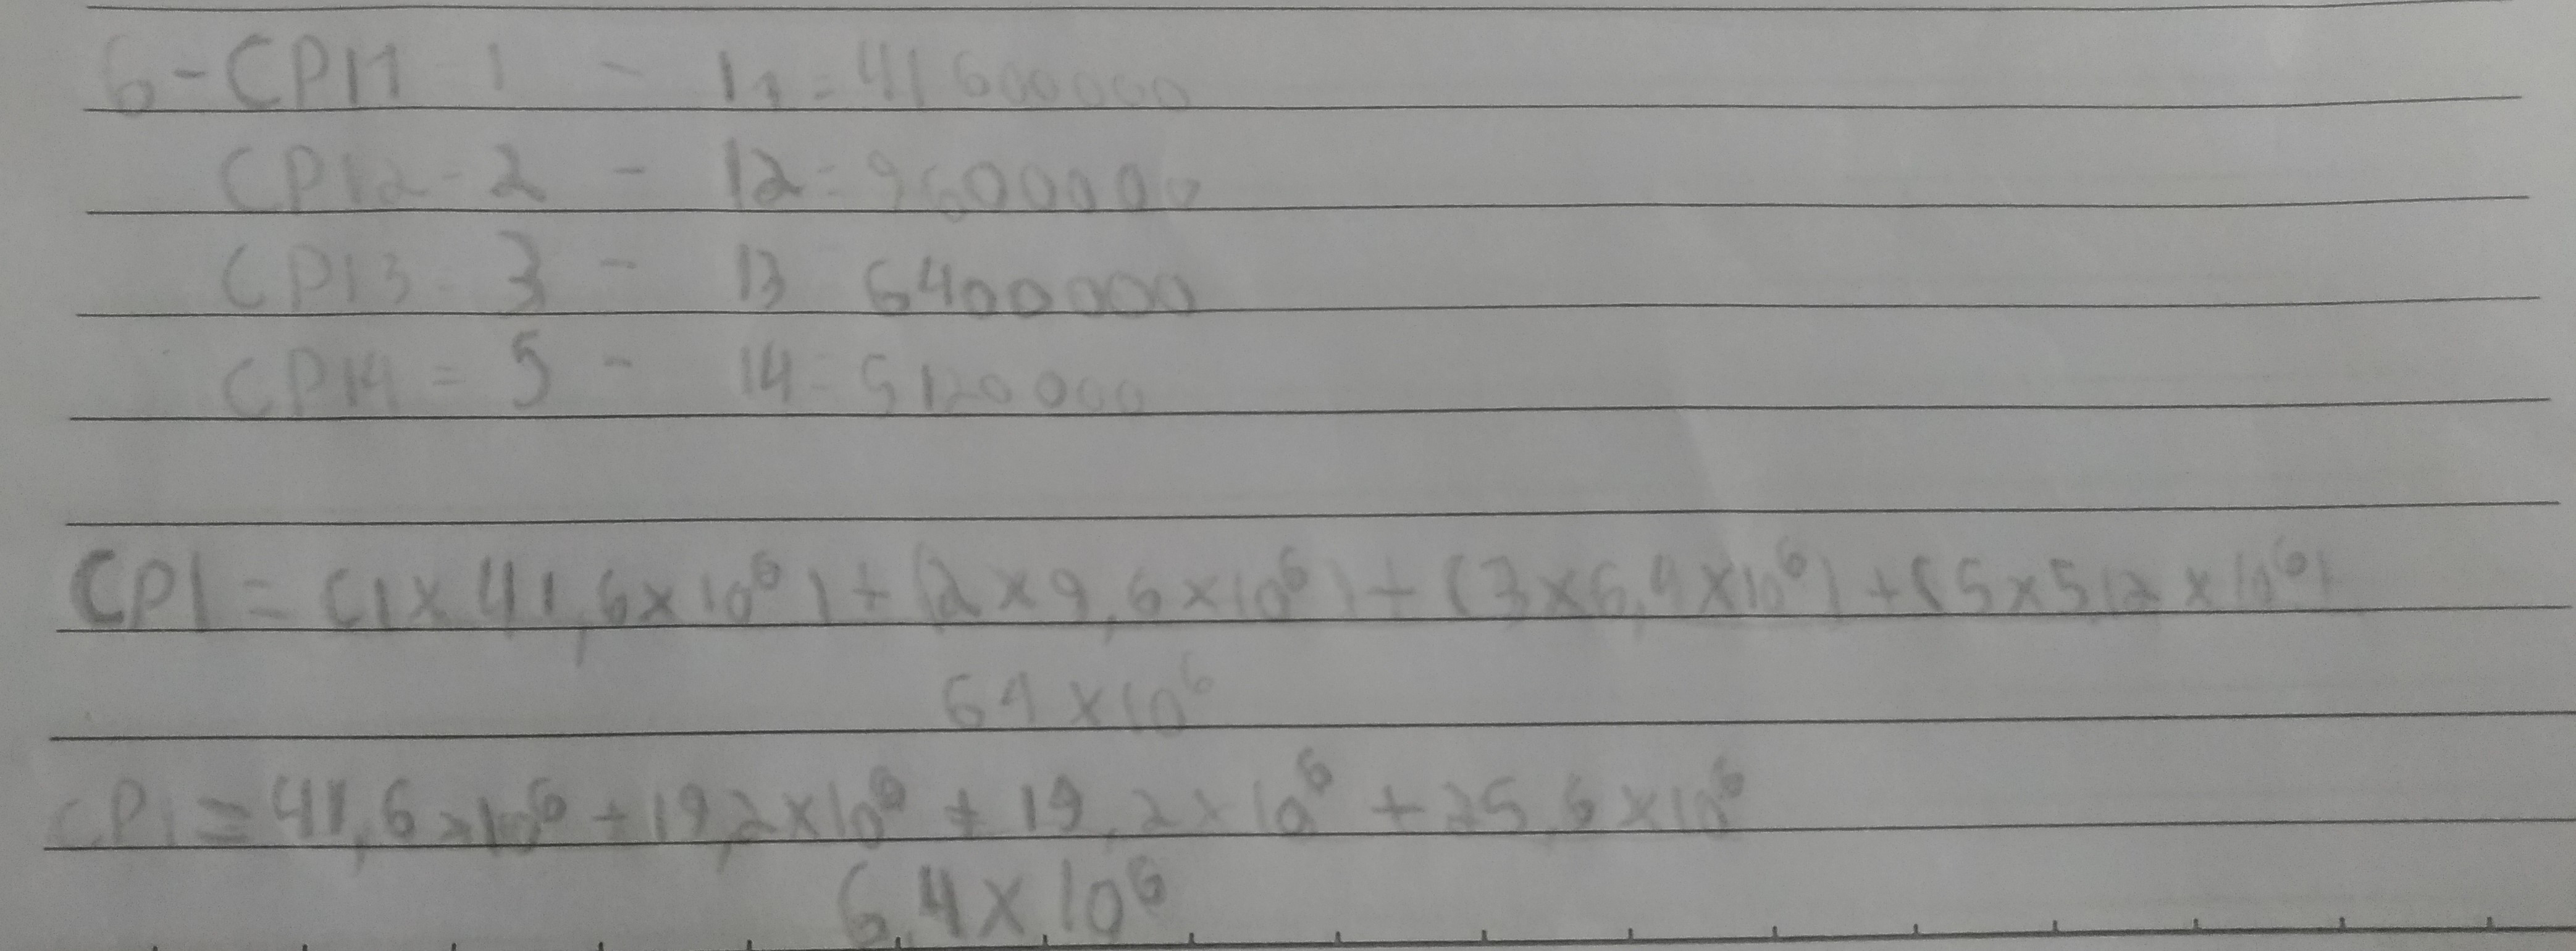 6-CPI1 1 - I1 = 41600000
CPI2 - 2 - I2 = 9600000
CPI3 - 3 - I3 6400000
CPI4 = 5 - I4 = 5120000
CPI = (1x 41,6x10⁶) + (2x9,6x10⁶) + (3x6,4x10⁶) + (5x512x10⁶)
64x10⁶
CPI = 41,6x10⁶ + 19,2x10⁶ + 19,2x10⁶ + 25,6x10⁶
6,4x10⁶